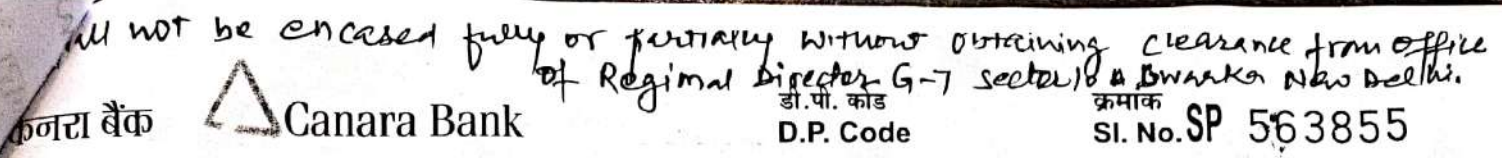 not be encased fully or partially without obtaining clearance from office
of Regimal Director G-7 sector 10 Dwarka New Delhi.
कनरा बैंक Canara Bank डी.पी. कोड क्रमांक
D.P. Code Sl. No. SP 563855